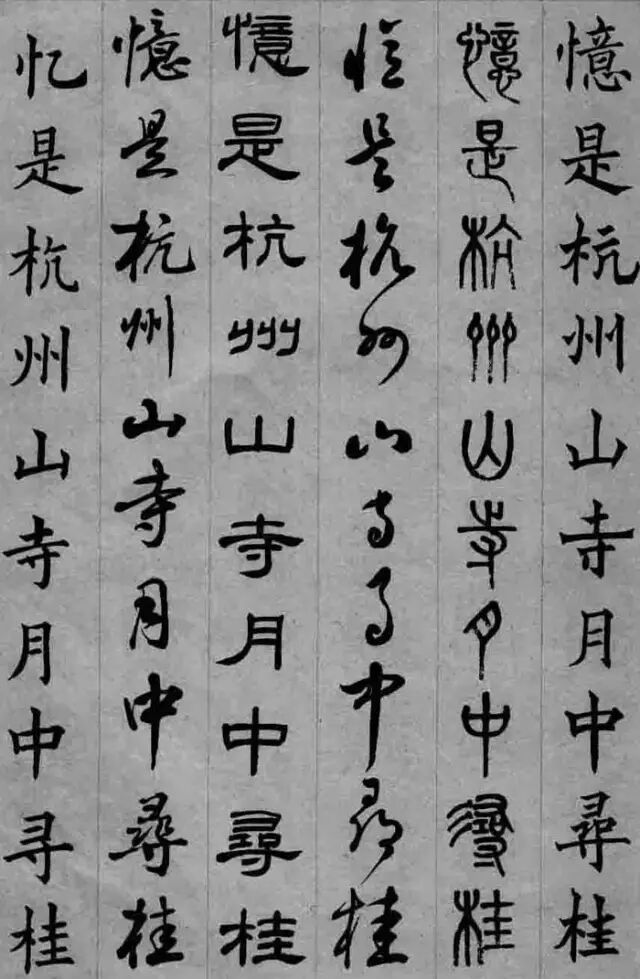 憶是杭州山寺月中尋桂
憶是杭州山寺月中尋桂
憶是杭州山寺月中尋桂
憶是杭州山寺月中尋桂
憶是杭州山寺月中尋桂
忆是杭州山寺月中寻桂